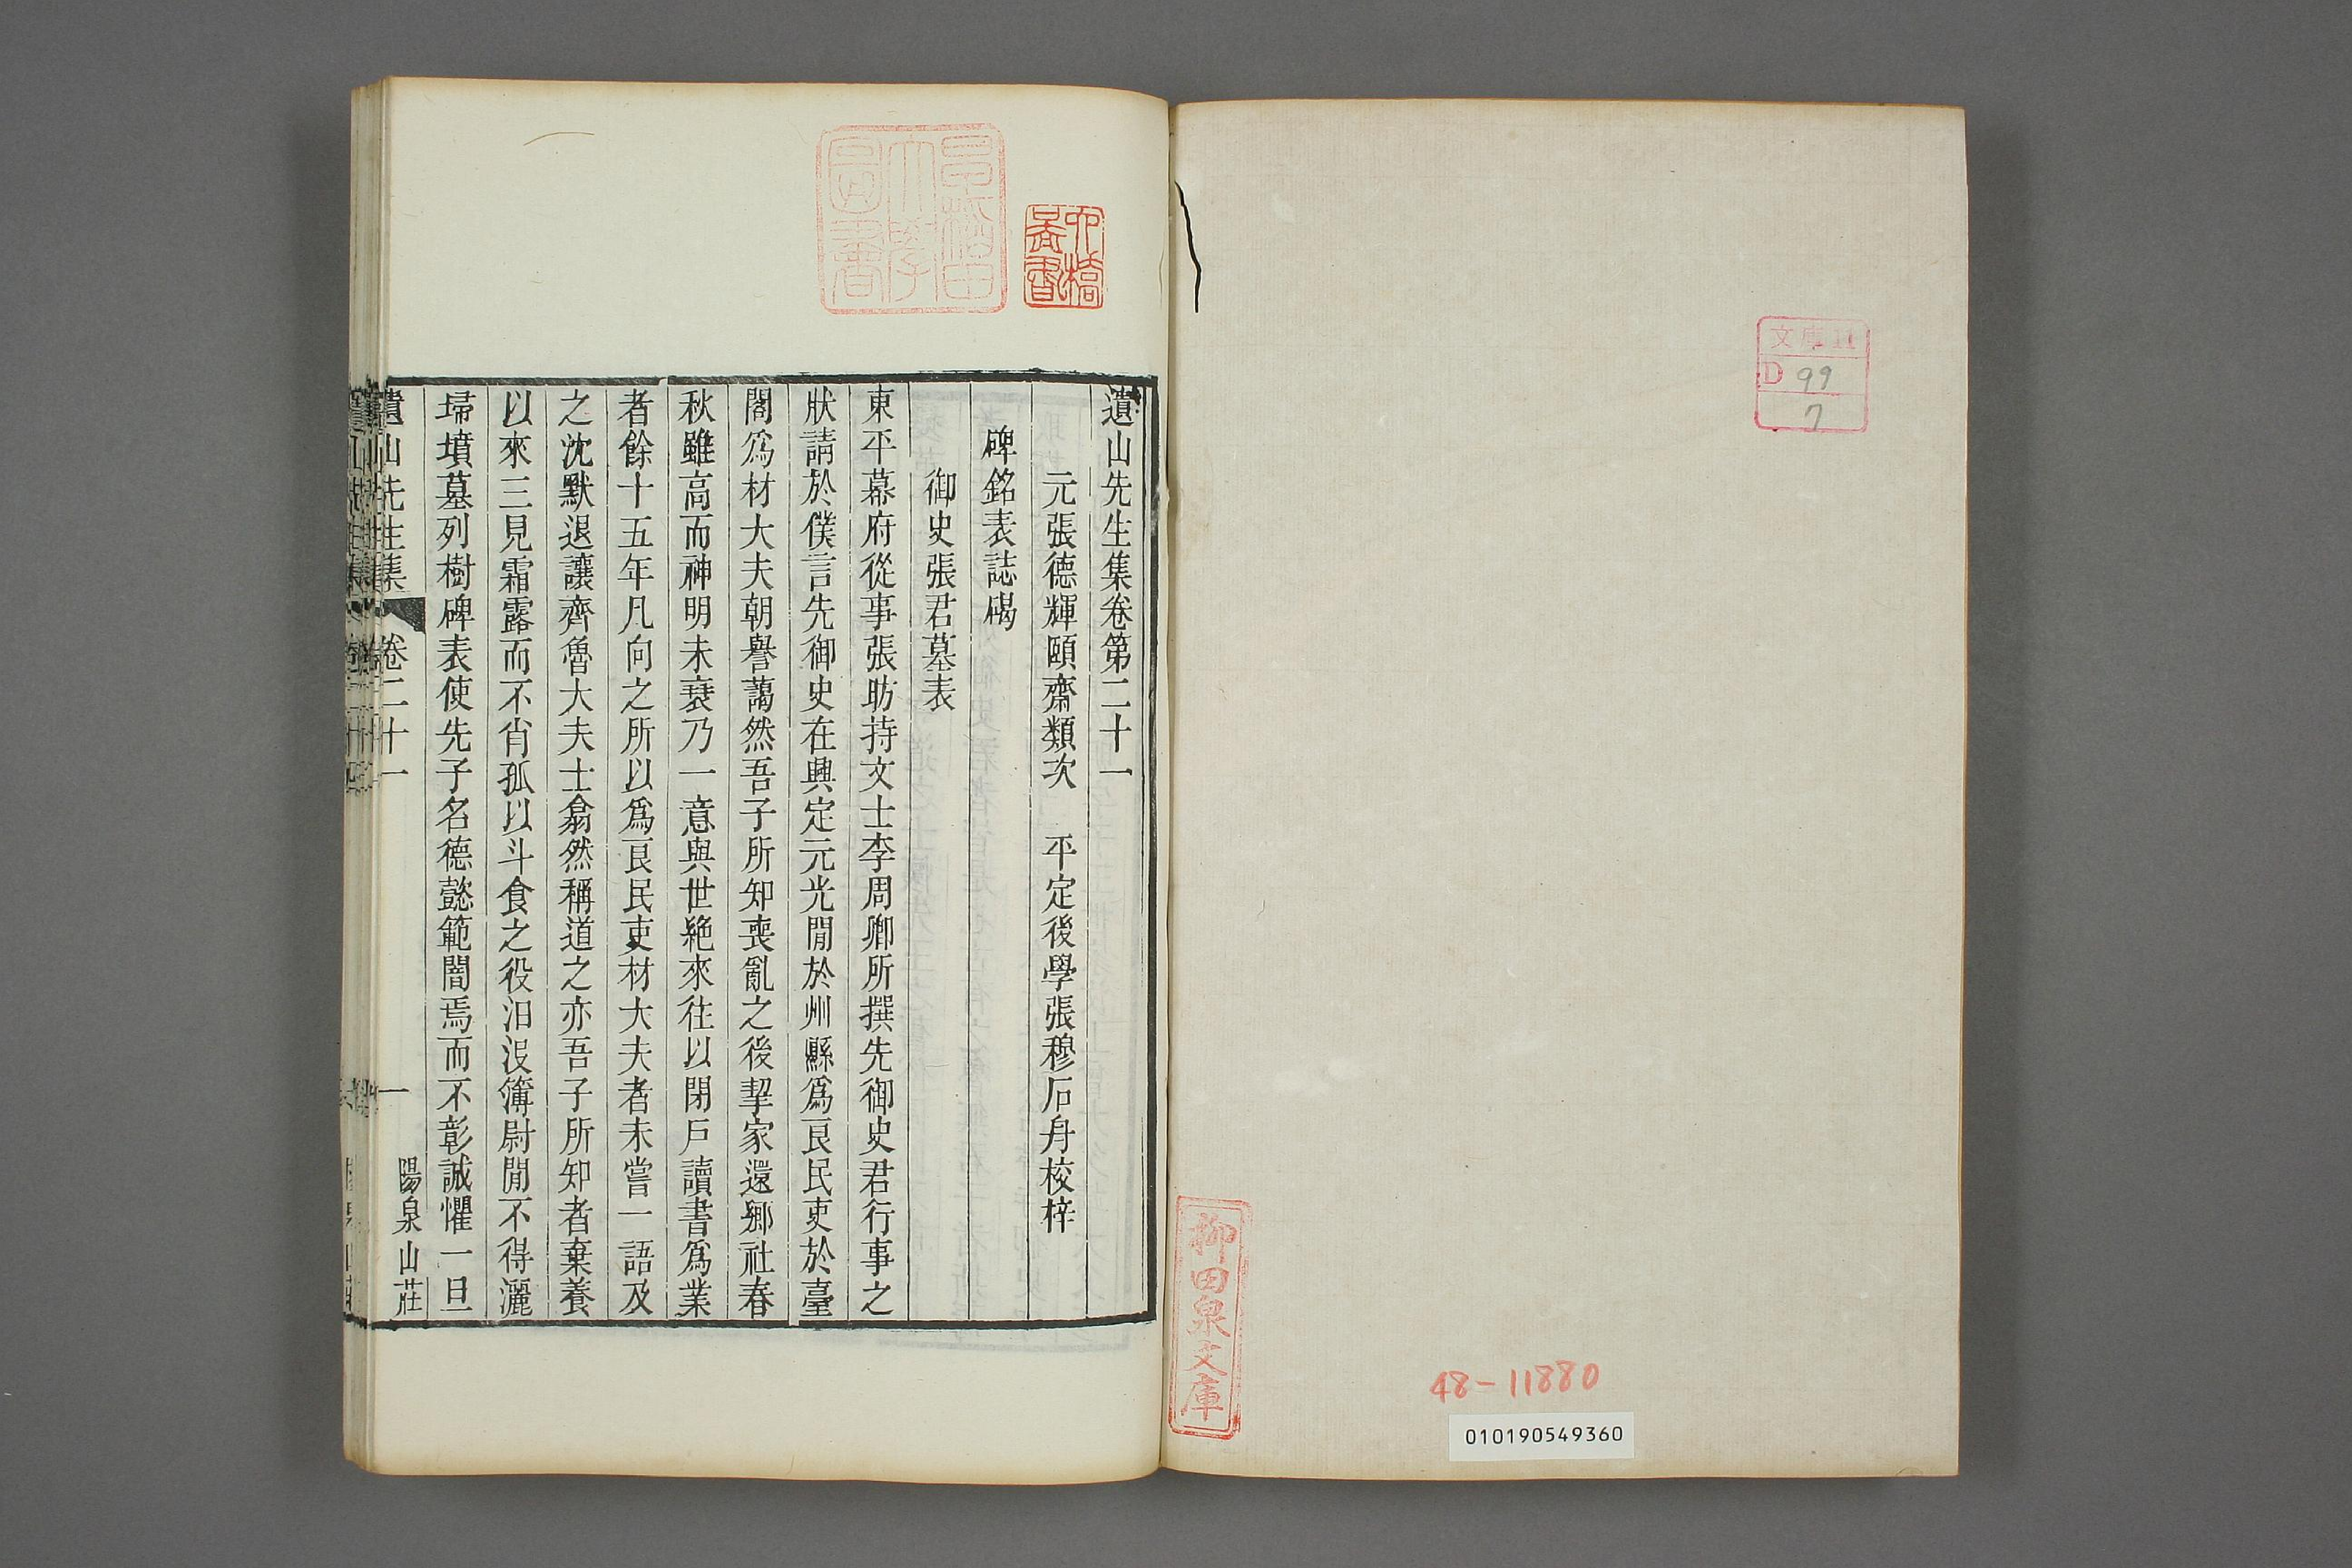 文庫11
D 99
7
柳田泉文庫
48-11880
010190549360
早稲田大學圖書
遺山先生集卷第二十一
元張德輝頤齋類次　平定後學張穆石舟校梓
碑銘表誌碣
御史張君墓表
東平幕府從事張昉持文士李周卿所撰先御史君行事之
狀請於僕言先御史在興定元光閒於州縣爲良民吏於臺
閣爲材大夫朝譽藹然吾子所知喪亂之後挈家還鄉社春
秋雖高而神明未衰乃一意與世絶來往以閉戶讀書爲業
者餘十五年凡向之所以爲良民吏材大夫者未嘗一語及
之沈默退讓齊魯大夫士翕然稱道之亦吾子所知者棄養
以來三見霜露而不肖孤以斗食之役汨沒簿尉閒不得灑
埽墳墓列樹碑表使先子名德懿範闇焉而不彰誠懼一旦
遺山先生集　卷二十一　一　陽泉山莊